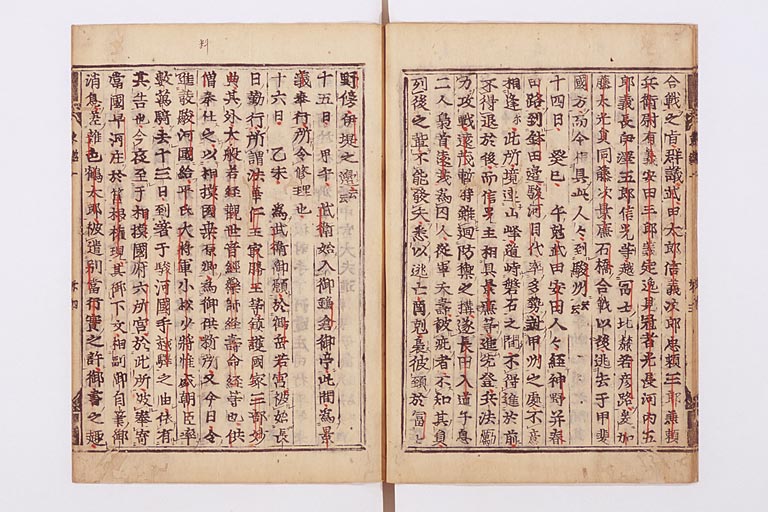 合戰之旨群議武田太郎信義次郎忠頼三郎兼頼
兵衛尉有義安田三郎義定逸見冠者光長河内五
郎義長伊澤五郎信光等越冨士北麓若彦路爰加
藤太光員同藤次景廉石橋合戰以後逃去于甲斐
國方而今相具此人々到駿州云々
十四日 癸巳 午尅武田安田人々經神野并春
田路到鉢田邊駿河目代率多勢赴甲州之處不意
相逢于此所境連山峯道峙磐石之間不得進於前
不得退於後而信光主相具景廉等進先登兵法勵
力攻戰遠茂暫時雖廻防禦之構遂長田入道子息
二人梟首遠茂為囚人從軍夭壽被疵者不知其員
列後之輩不能發矢悉以逃亡酉尅梟彼頸於冨士
野傍伊堤之邊云云
十五日 甲午 武衛始入御鎌倉御亭此間為景
義奉行所令修理也
十六日 乙未 為武衛御願於鶴岳若宮被始長
日勤行所謂法華仁王最勝王等鎮護國家三部妙
典其外大般若經觀世音經藥師經壽命經等也供
僧奉仕之以相摸國桒原郷為御供新所又今日令
進發駿河國給平氏大將軍小松少將惟盛朝臣率
數萬騎去十三日到着于駿河國手越驛之由依有
其告也今夜至于相摸國府六所宮於此所被奉寄
當國早河庄於筥根權現其御下文相副御自筆御
消息差雜色鶴太郎被遣別當行實之許御書之趣